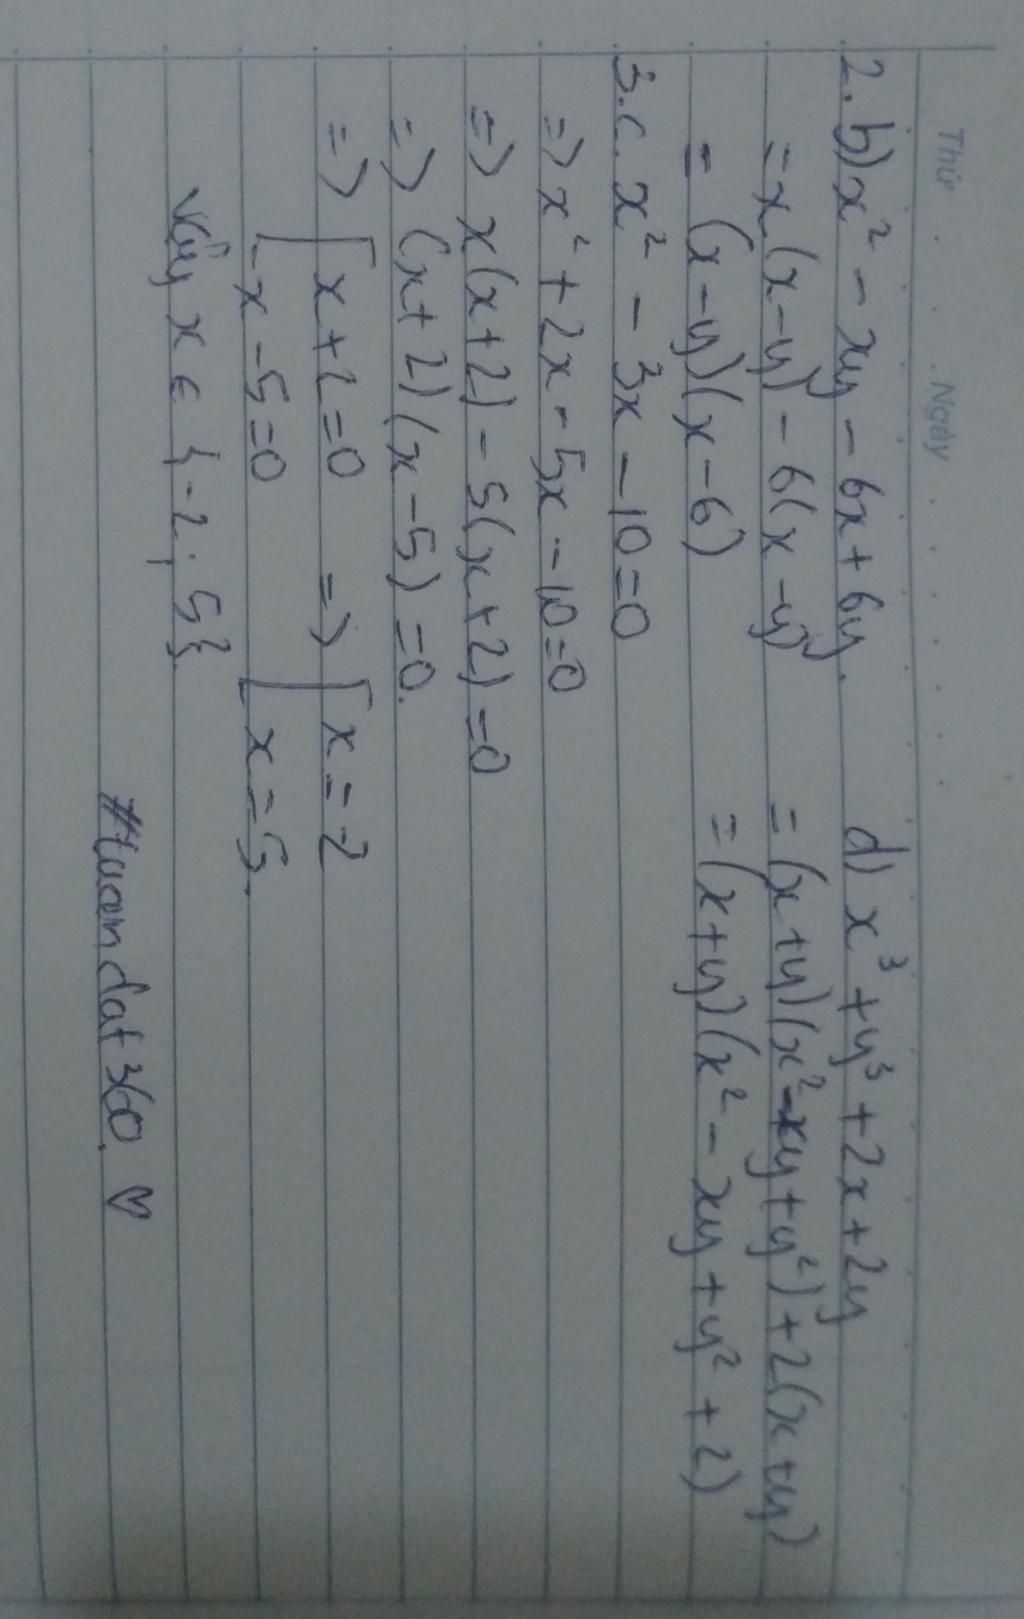 Thứ Ngày
2. b) x² - xy - 6x + 6y.
= x(x-y) - 6(x-y)
= (x-y)(x-6)
d) x³ + y³ + 2x + 2y
= (x+y)(x²-xy+y²) + 2(x+y)
= (x+y)(x² - xy + y² + 2)
3. c. x² - 3x - 10 = 0
=> x² + 2x - 5x - 10 = 0
=> x(x+2) - 5(x+2) = 0
=> (x+2)(x-5) = 0.
=> [ x+2=0 => [ x = -2
x-5=0 x = 5.
Vậy x ∈ {-2; 5}.
#tuemdat360 ♡